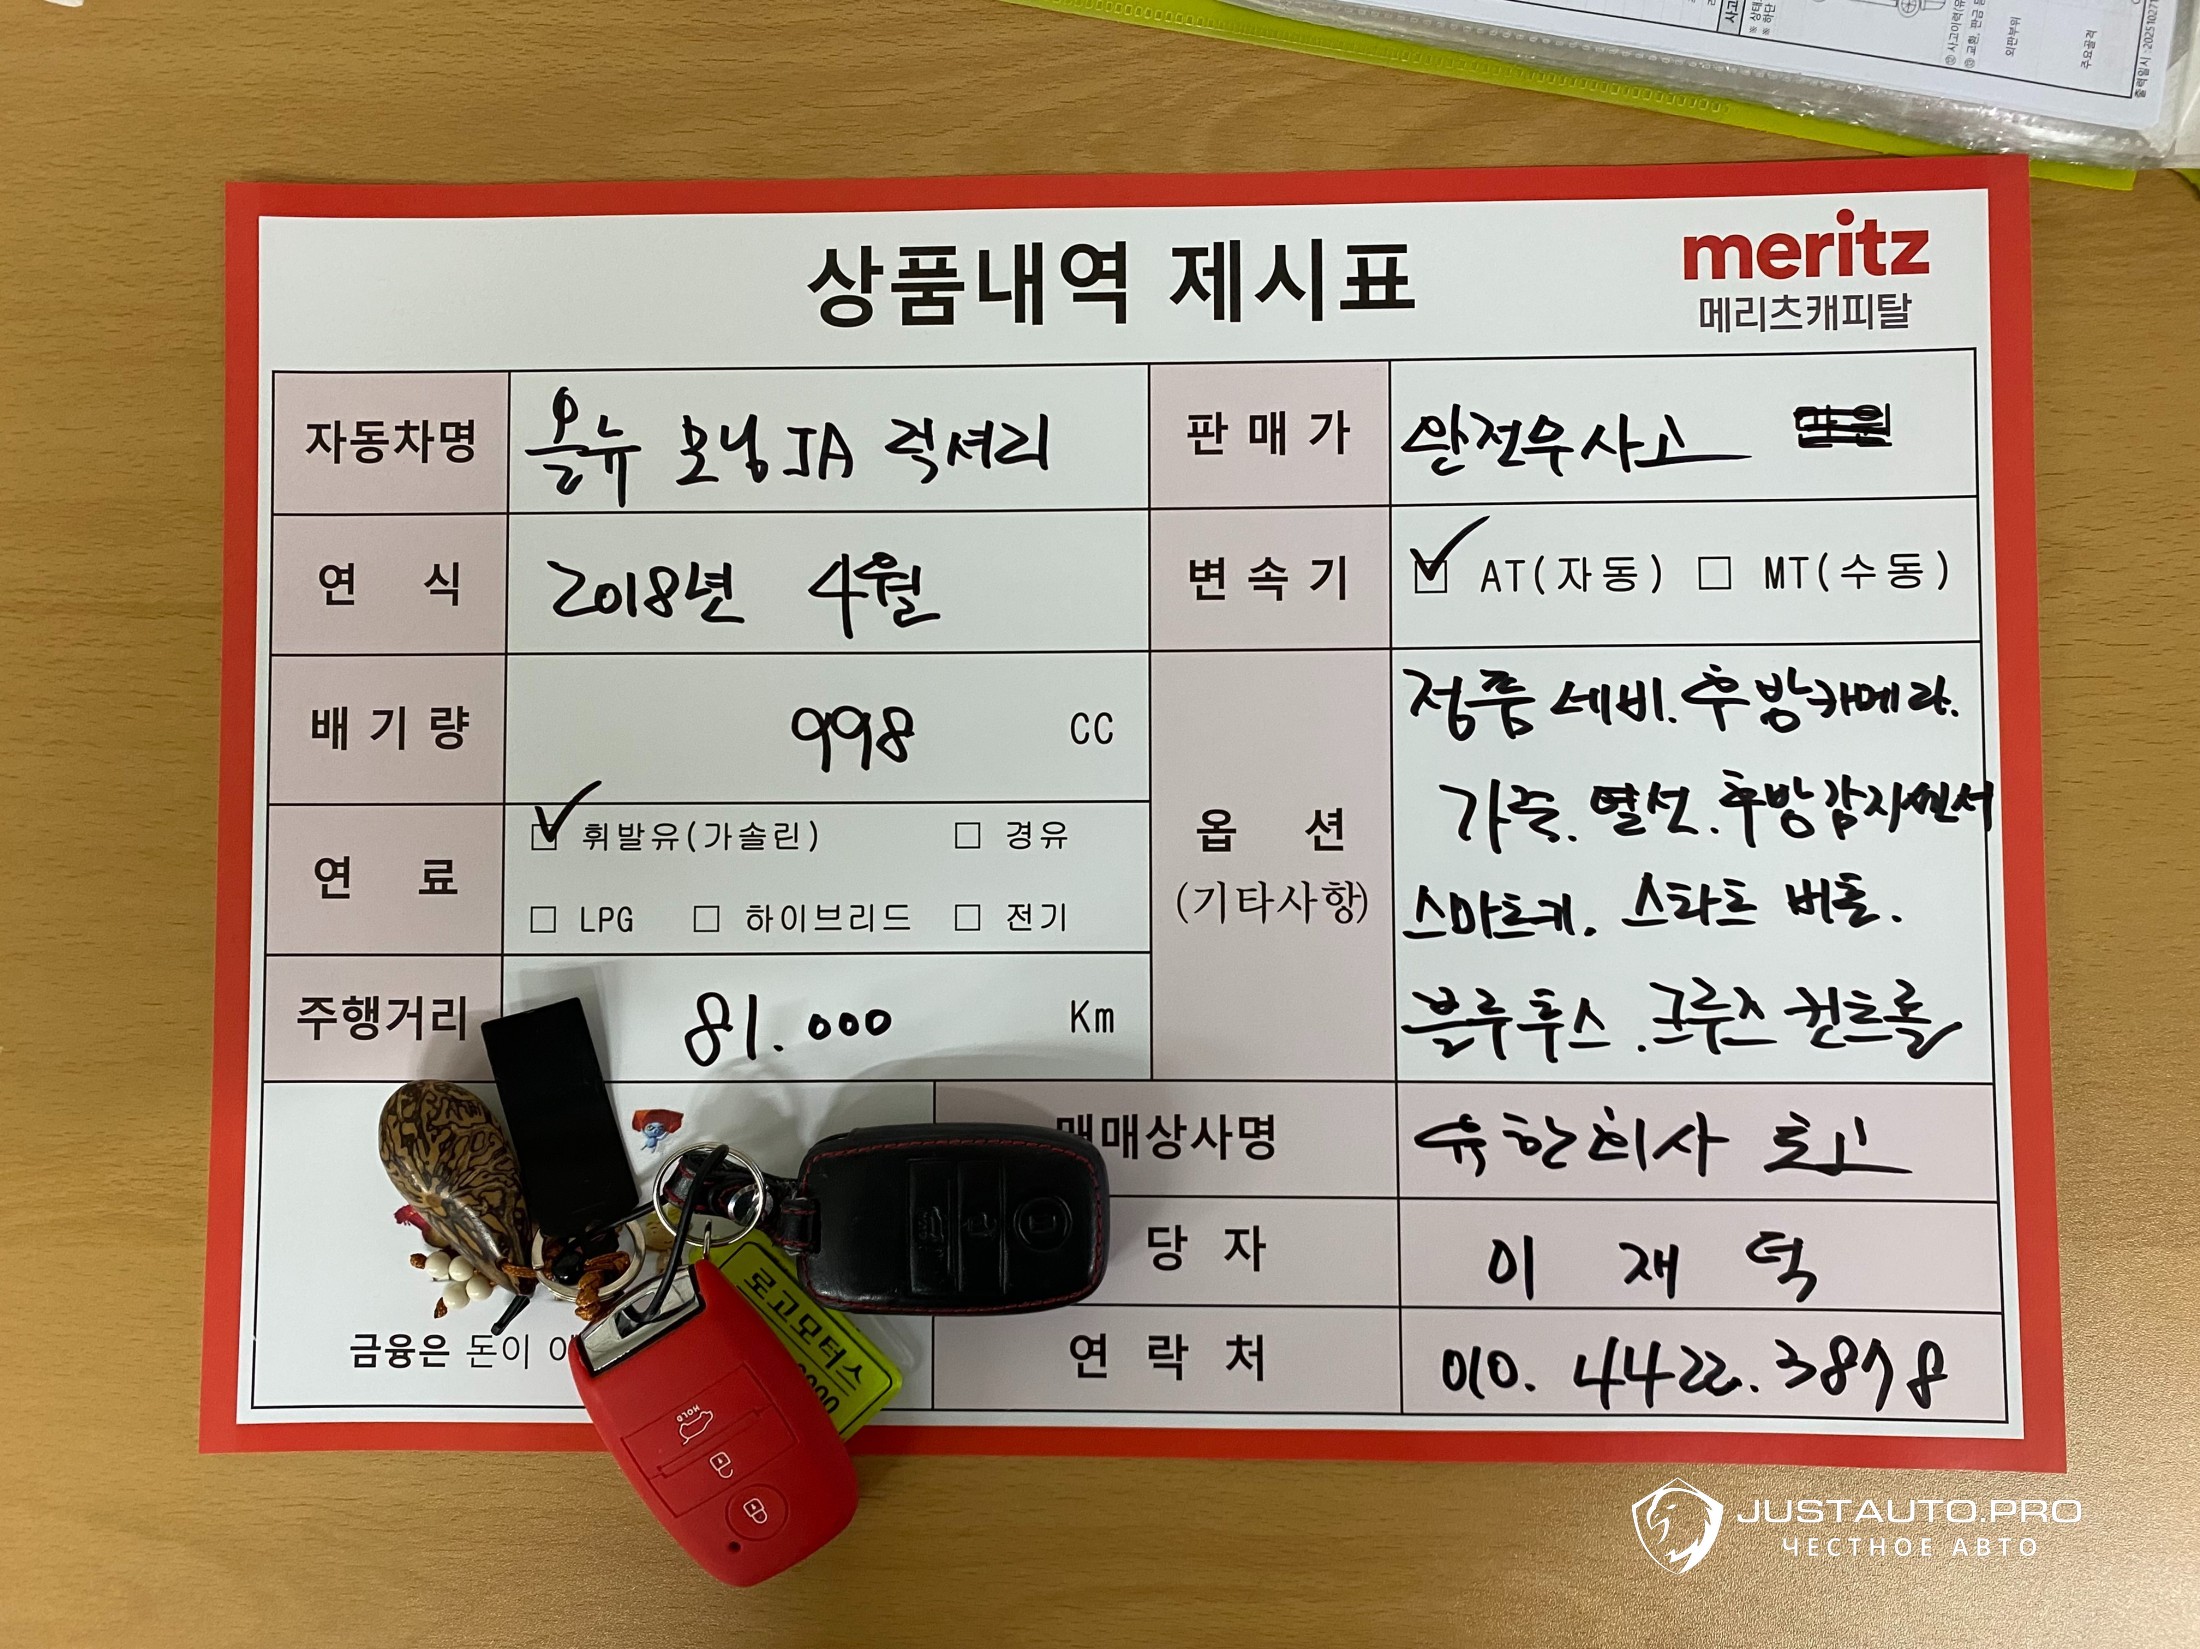 상품내역 제시표
meritz
메리츠캐피탈
자동차명 올뉴 모닝 JA 럭셔리
판매가 완전무사고
연 식 2018년 4월
변속기 AT(자동) MT(수동)
배기량 998 CC
연 료 휘발유(가솔린) 경유
LPG 하이브리드 전기
주행거리 81.000 Km
옵 션
(기타사항)
정품 네비. 후방카메라.
가죽. 열선. 후방감지센서
스마트키. 스타트 버튼.
블루투스. 크루즈 컨트롤
매매상사명 유한회사 로고
당 자 이 재 덕
연 락 처 010. 4422. 3878
금융은 돈이
로고모터스
HOLD
외판부위
주요골격
JUSTAUTO.PRO
ЧЕСТНОЕ АВТО